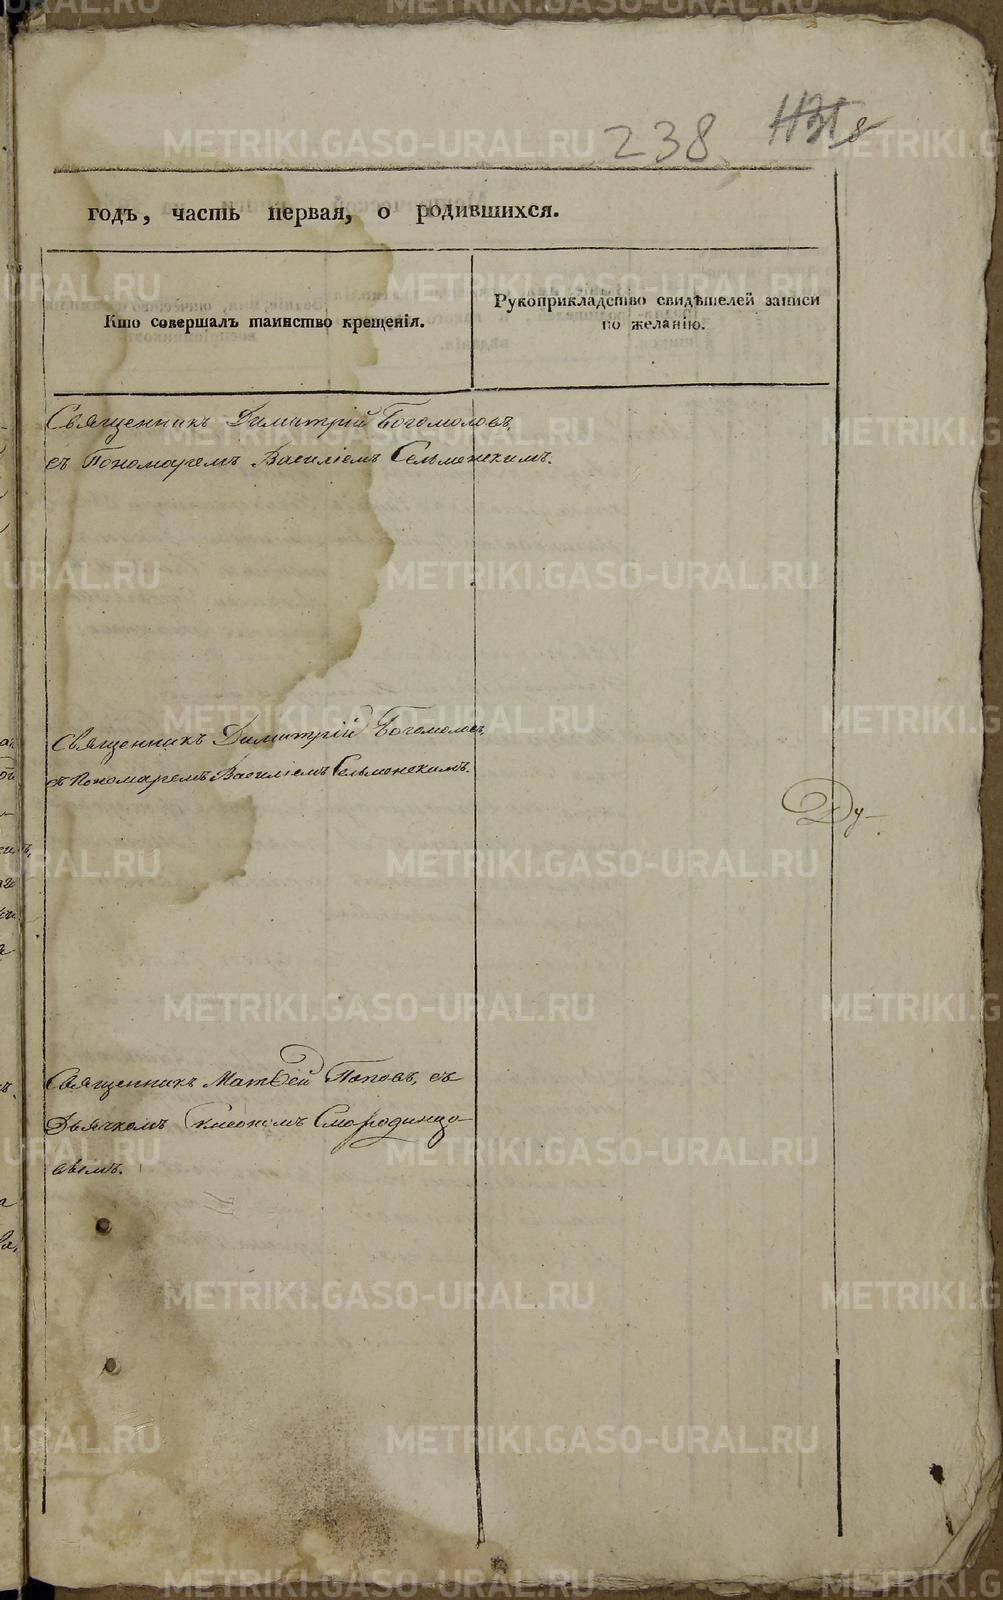 238
годъ, часть первая, о родившихся.
Кто совершалъ таинство крещенія.
Рукоприкладство свидѣтелей записи
по желанію.
Священникъ Димитрій Богомоловъ,
съ Пономаремъ Василіемъ Сельменскимъ.
Священникъ Димитрій Богомоловъ,
съ Пономаремъ Василіемъ Сельменскимъ.
Священникъ Матѳей Поповъ, съ
Дьячкомъ Симеономъ Смородинцо-
вымъ.
METRIKI.GASO-URAL.RU